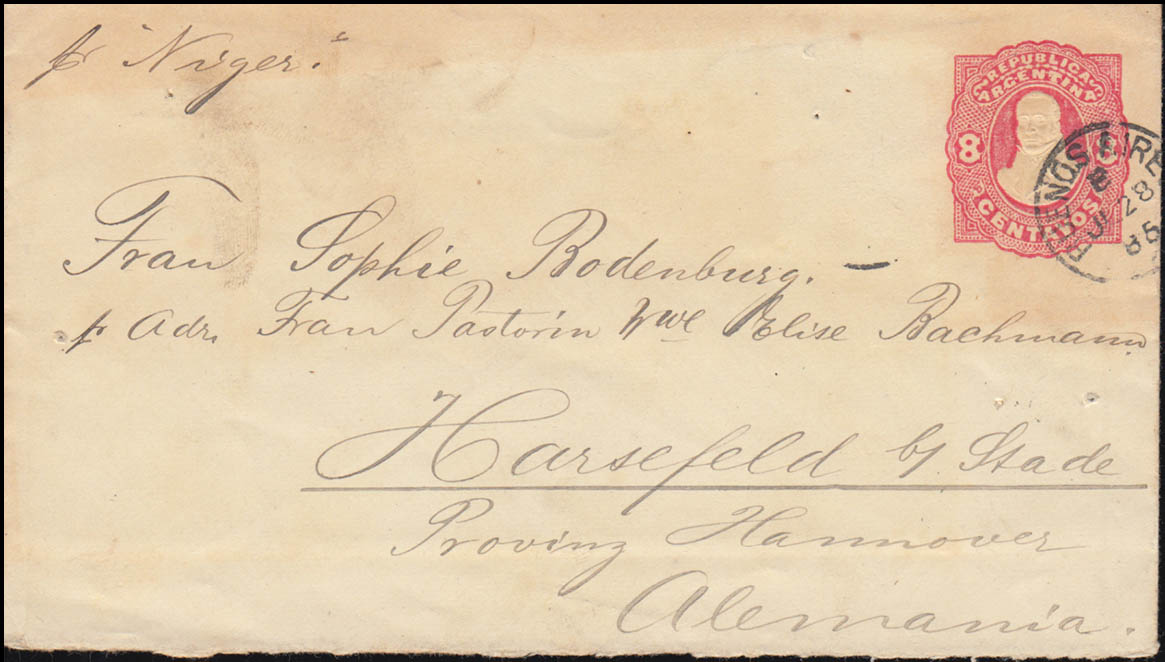 pr "Niger."
REPUBLICA
ARGENTINA
8
CENTAVOS
BUENOS AIRE
2
JL 28
85
Frau Sophie Bodenburg. —
pr Adr. Frau Pastorin Wwe Elise Bachmann
Harsefeld b/ Stade
Provinz Hannover
Alemania.